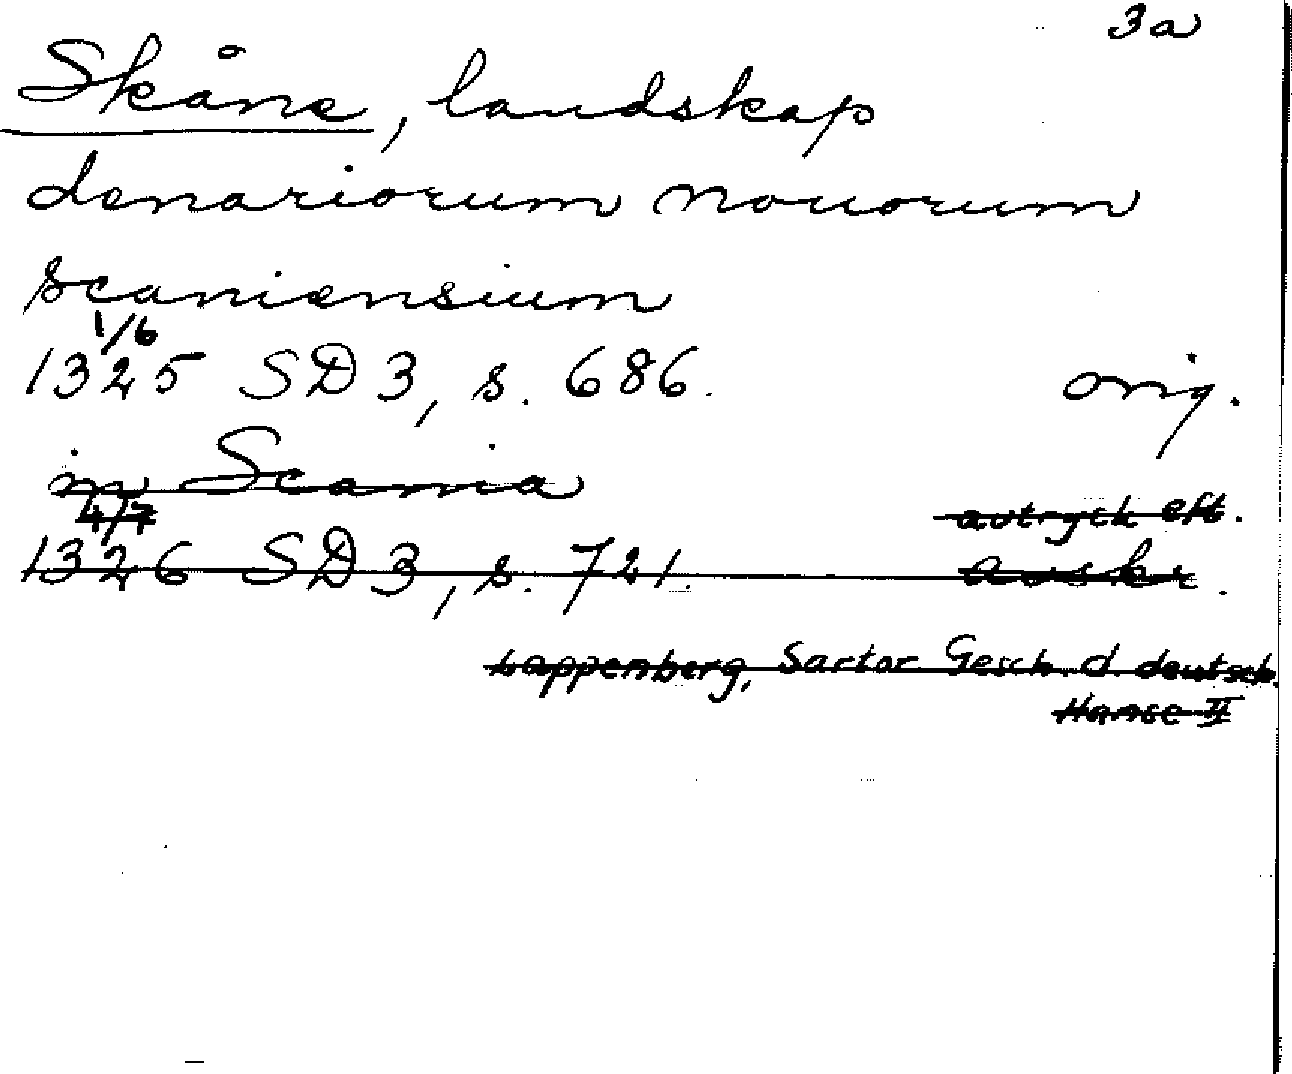 3a
Skåne, landskap
denariorum nouorum
scaniensium
1/6
1325 SD 3, s. 686. orig.
in Scania
4/7 avtryck eft.
1326 SD 3, s. 721. avskr.
Lappenberg, Sartor Gesch. d. deutsch.
Hanse II